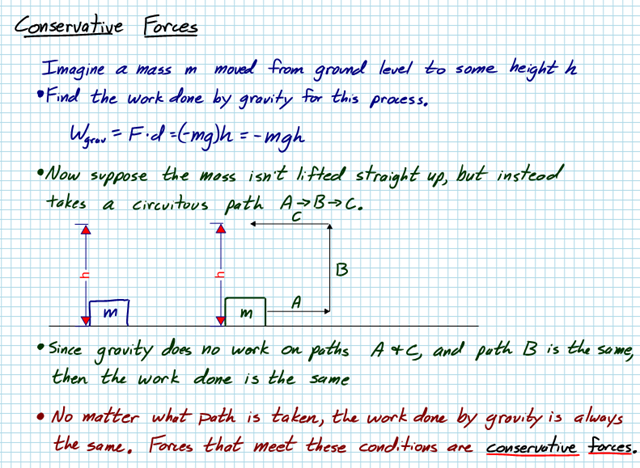 Conservative Forces
Imagine a mass m moved from ground level to some height h
•Find the work done by gravity for this process.
Wgrav = F·d = (-mg)h = -mgh
•Now suppose the mass isn't lifted straight up, but instead
takes a circuitous path A→B→C.
C
h
h
B
A
m
m
•Since gravity does no work on paths A & C, and path B is the same,
then the work done is the same
•No matter what path is taken, the work done by gravity is always
the same. Forces that meet these conditions are conservative forces.